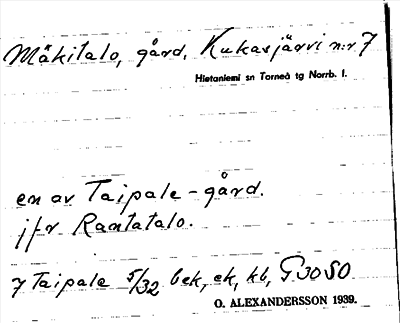 Mäkitalo, gård, Kukasjärvi n:r 7
Hietaniemi sn Torneå tg Norrb. l.
en av Taipale-gård.
jfr Rantatalo.
7 Taipale 5/32 bek, ek, kb, G3050.
O. ALEXANDERSSON 1939.